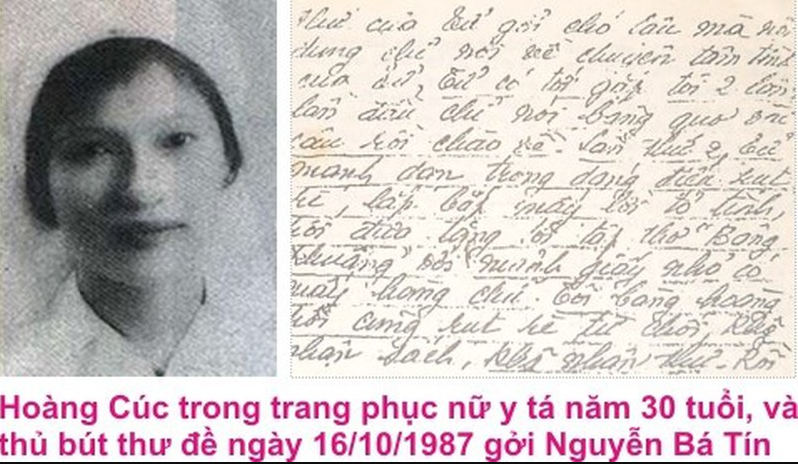 Thư của Tử gởi cho Cúc mà nội
dung chỉ nói về chuyện tâm tình
của Tử, Tử có tới gặp tôi 2 lần,
lần đầu chỉ nói bâng quơ vài
câu rồi chào về. Lần thứ 2, Tử
mạnh dạn trong dáng điệu rụt
rè, lắp bắp mấy lời tỏ tình,
rồi đưa tặng tôi tập thơ Bâng
Khuâng với mảnh giấy nhỏ có
mấy hàng chữ. Tôi bàng hoàng
rồi cũng rụt rè từ chối, không
nhận sách, không nhận thư. Rồi
Hoàng Cúc trong trang phục nữ y tá năm 30 tuổi, và
thủ bút thư đề ngày 16/10/1987 gởi Nguyễn Bá Tín